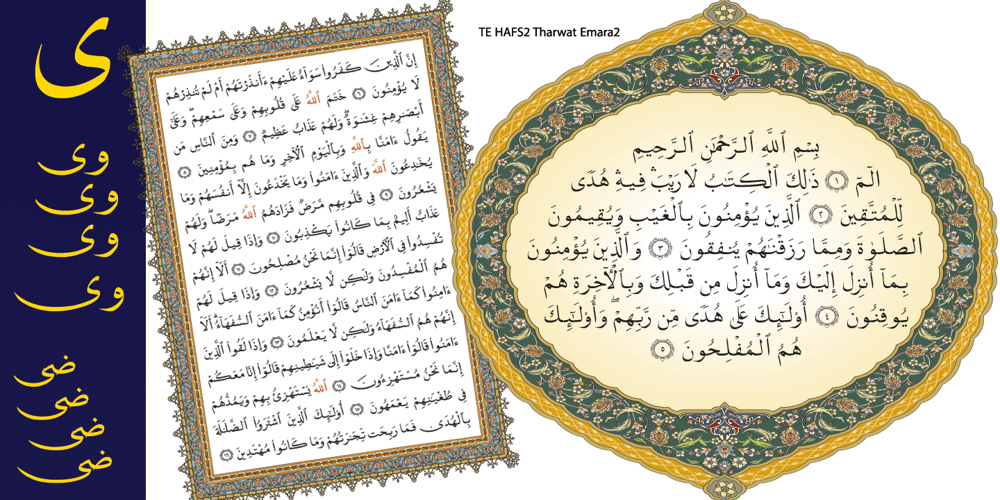 TE HAFS2 Tharwat Emara2
ى
وى
وى
وى
وى
ضى
ضى
ضى
ضى
إِنَّ ٱلَّذِينَ كَفَرُوا۟ سَوَآءٌ عَلَيْهِمْ ءَأَنذَرْتَهُمْ أَمْ لَمْ تُنذِرْهُمْ
لَا يُؤْمِنُونَ ۝٦ خَتَمَ ٱللَّهُ عَلَىٰ قُلُوبِهِمْ وَعَلَىٰ سَمْعِهِمْ ۖ وَعَلَىٰٓ
أَبْصَٰرِهِمْ غِشَٰوَةٌ ۖ وَلَهُمْ عَذَابٌ عَظِيمٌ ۝٧ وَمِنَ ٱلنَّاسِ مَن
يَقُولُ ءَامَنَّا بِٱللَّهِ وَبِٱلْيَوْمِ ٱلْءَاخِرِ وَمَا هُم بِمُؤْمِنِينَ ۝٨
يُخَٰدِعُونَ ٱللَّهَ وَٱلَّذِينَ ءَامَنُوا۟ وَمَا يَخْدَعُونَ إِلَّآ أَنفُسَهُمْ وَمَا
يَشْعُرُونَ ۝٩ فِى قُلُوبِهِم مَّرَضٌ فَزَادَهُمُ ٱللَّهُ مَرَضًا ۖ وَلَهُمْ
عَذَابٌ أَلِيمٌۢ بِمَا كَانُوا۟ يَكْذِبُونَ ۝١٠ وَإِذَا قِيلَ لَهُمْ لَا
تُفْسِدُوا۟ فِى ٱلْأَرْضِ قَالُوٓا۟ إِنَّمَا نَحْنُ مُصْلِحُونَ ۝١١ أَلَآ إِنَّهُمْ
هُمُ ٱلْمُفْسِدُونَ وَلَٰكِن لَّا يَشْعُرُونَ ۝١٢ وَإِذَا قِيلَ لَهُمْ
ءَامِنُوا۟ كَمَآ ءَامَنَ ٱلنَّاسُ قَالُوٓا۟ أَنُؤْمِنُ كَمَآ ءَامَنَ ٱلسُّفَهَآءُ ۗ أَلَآ
إِنَّهُمْ هُمُ ٱلسُّفَهَآءُ وَلَٰكِن لَّا يَعْلَمُونَ ۝١٣ وَإِذَا لَقُوا۟ ٱلَّذِينَ
ءَامَنُوا۟ قَالُوٓا۟ ءَامَنَّا وَإِذَا خَلَوْا۟ إِلَىٰ شَيَٰطِينِهِمْ قَالُوٓا۟ إِنَّا مَعَكُمْ
إِنَّمَا نَحْنُ مُسْتَهْزِءُونَ ۝١٤ ٱللَّهُ يَسْتَهْزِئُ بِهِمْ وَيَمُدُّهُمْ
فِى طُغْيَٰنِهِمْ يَعْمَهُونَ ۝١٥ أُو۟لَٰٓئِكَ ٱلَّذِينَ ٱشْتَرَوُا۟ ٱلضَّلَٰلَةَ
بِٱلْهُدَىٰ فَمَا رَبِحَت تِّجَٰرَتُهُمْ وَمَا كَانُوا۟ مُهْتَدِينَ ۝١٦
بِسْمِ ٱللَّهِ ٱلرَّحْمَٰنِ ٱلرَّحِيمِ
الٓمٓ ۝١ ذَٰلِكَ ٱلْكِتَٰبُ لَا رَيْبَ ۛ فِيهِ ۛ هُدًى
لِّلْمُتَّقِينَ ۝٢ ٱلَّذِينَ يُؤْمِنُونَ بِٱلْغَيْبِ وَيُقِيمُونَ
ٱلصَّلَوٰةَ وَمِمَّا رَزَقْنَٰهُمْ يُنفِقُونَ ۝٣ وَٱلَّذِينَ يُؤْمِنُونَ
بِمَآ أُنزِلَ إِلَيْكَ وَمَآ أُنزِلَ مِن قَبْلِكَ وَبِٱلْءَاخِرَةِ هُمْ
يُوقِنُونَ ۝٤ أُو۟لَٰٓئِكَ عَلَىٰ هُدًى مِّن رَّبِّهِمْ ۖ وَأُو۟لَٰٓئِكَ
هُمُ ٱلْمُفْلِحُونَ ۝٥